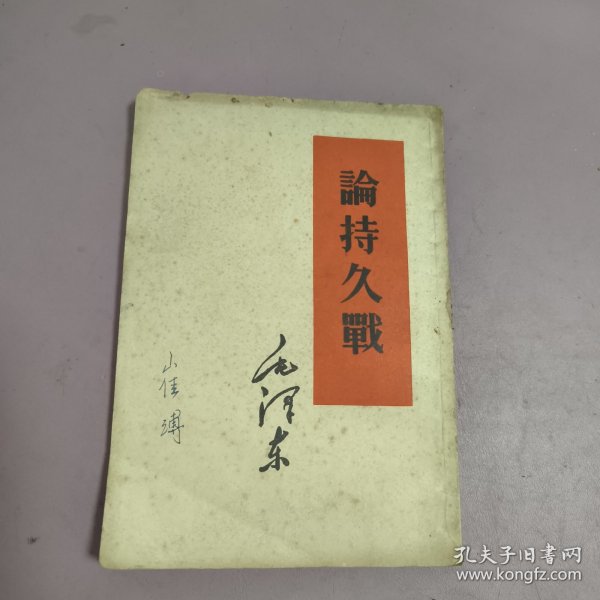 論持久戰
毛泽东
孔夫子旧書网
www.kongfz.com